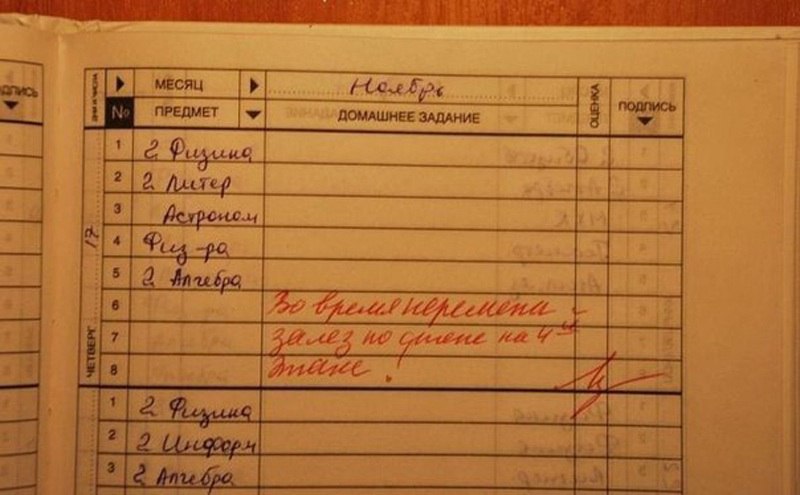 ПОДПИСЬ
ДНИ И ЧИСЛА
МЕСЯЦ Ноябрь ОЦЕНКА
№ ПРЕДМЕТ ДОМАШНЕЕ ЗАДАНИЕ ПОДПИСЬ
ЧЕТВЕРГ 17
1 2 Физика
2 2 Литер
3 Астроном
4 Физ-ра
5 2 Алгебра
6 Во время перемены
7 залез по стене на 4й
8 этаж!
1 2 Физика
2 2 Информ
3 2 Алгебра